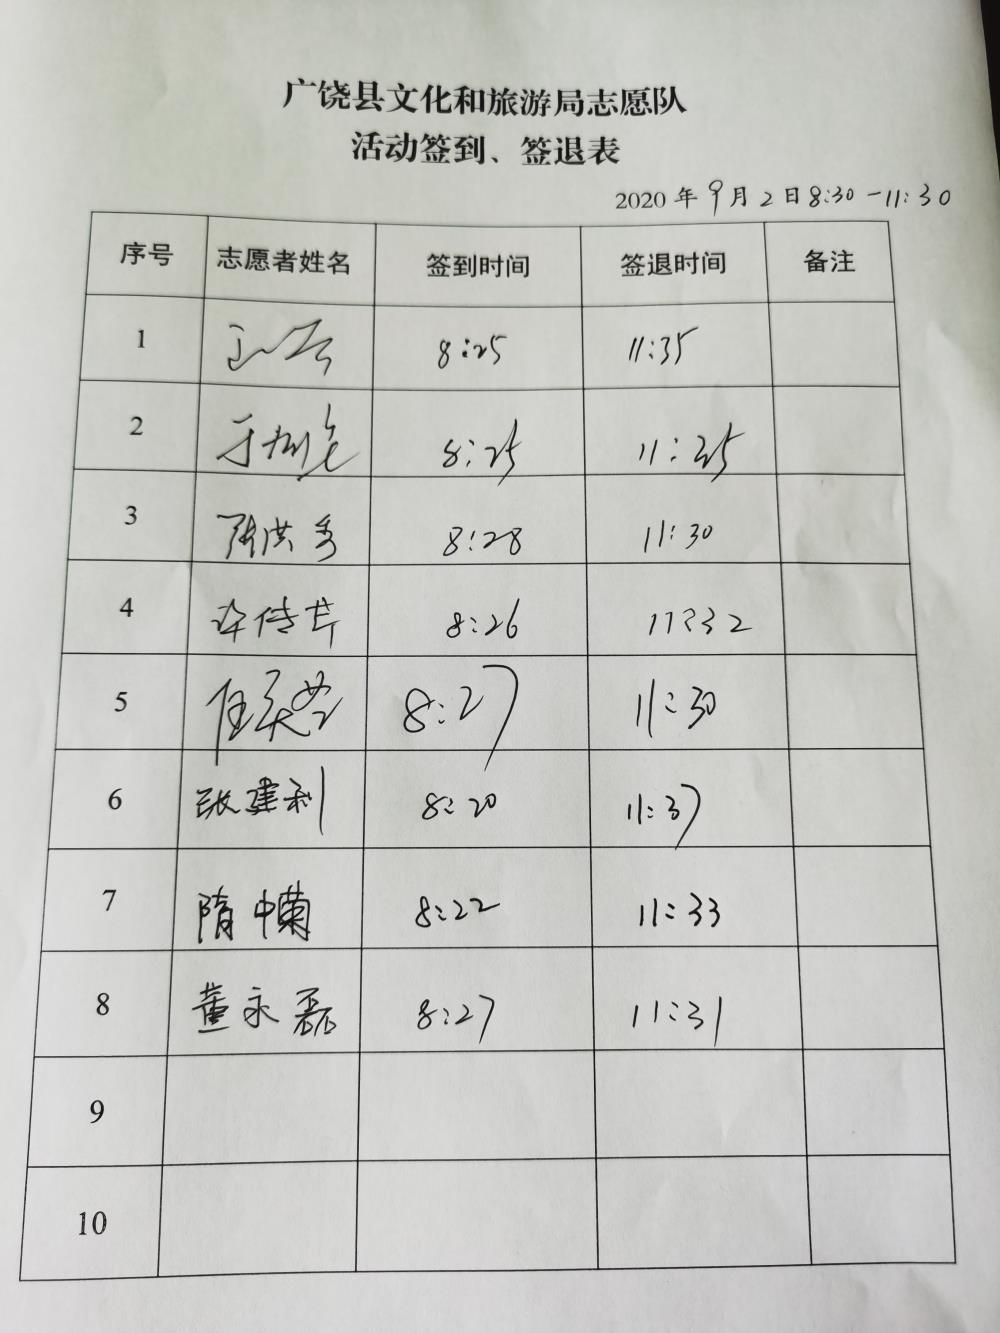 广饶县文化和旅游局志愿队
活动签到、签退表
2020年9月2日8:30-11:30
序号 志愿者姓名 签到时间 签退时间 备注
1 8:25 11:35
2 8:25 11:35
3 张洪秀 8:28 11:30
4 许传芹 8:26 11:32
5 8:27 11:30
6 张建利 8:20 11:37
7 隋中兰 8:22 11:33
8 董永磊 8:27 11:31
9
10